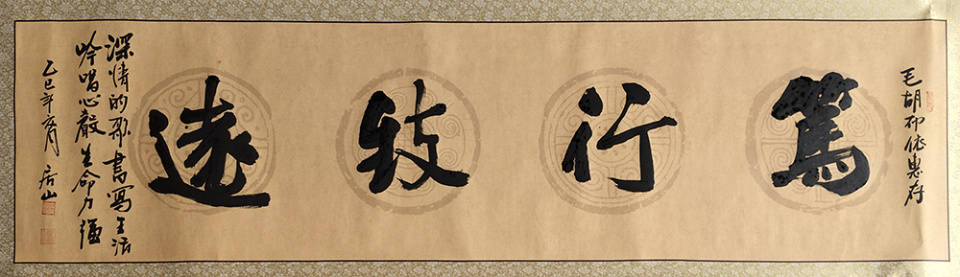 毛胡依惠存
篤行致遠
深情的歌書寫生活
吟唱心聲生命力強
乙巳年月 居山